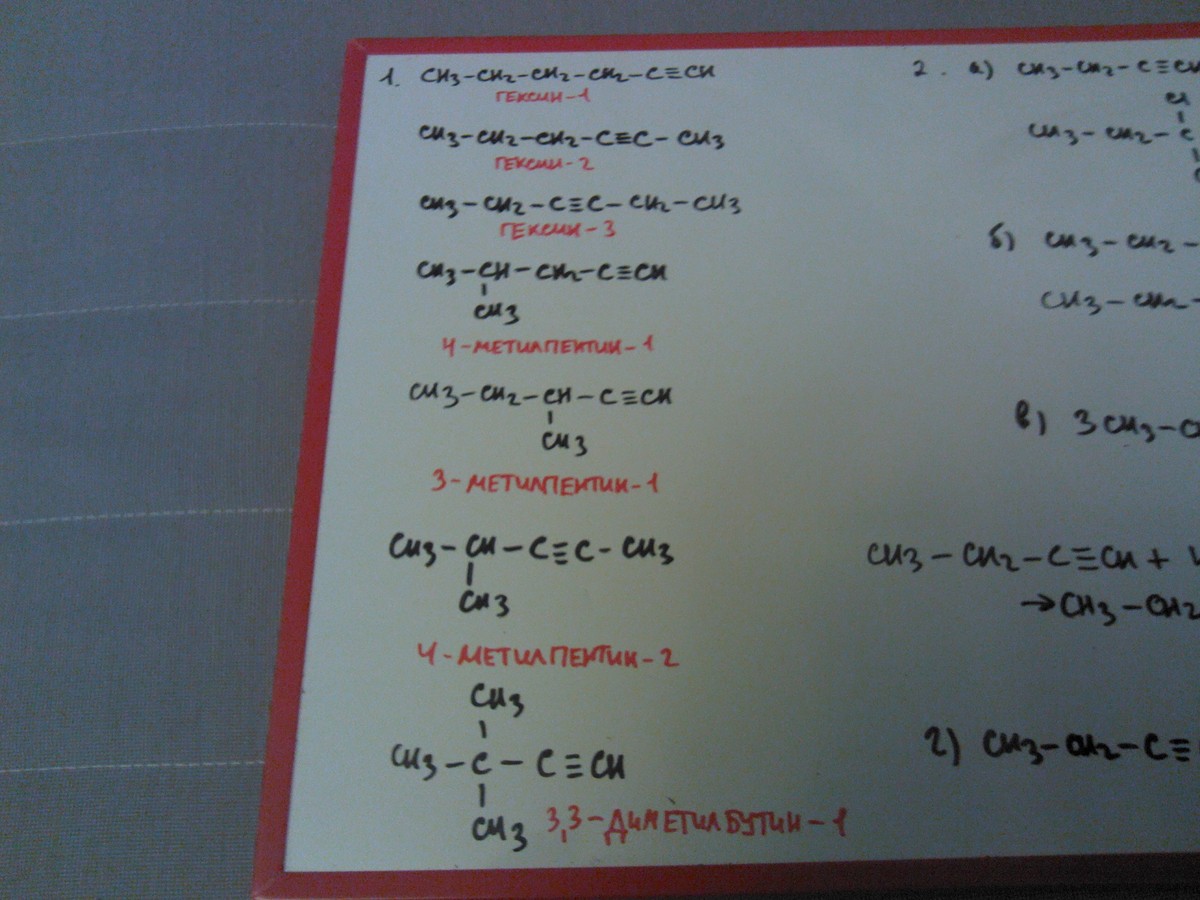 1. CH3-CH2-CH2-CH2-C≡CH
ГЕКСИН-1
CH3-CH2-CH2-C≡C-CH3
ГЕКСИН-2
CH3-CH2-C≡C-CH2-CH3
ГЕКСИН-3
CH3-CH-CH2-C≡CH
CH3
4-МЕТИЛПЕНТИН-1
CH3-CH2-CH-C≡CH
CH3
3-МЕТИЛПЕНТИН-1
CH3-CH-C≡C-CH3
CH3
4-МЕТИЛПЕНТИН-2
CH3
CH3-C-C≡CH
CH3
3,3-ДИМЕТИЛБУТИН-1
2. а) CH3-CH2-C≡CH
Cl
CH3-CH2-C
б) CH3-CH2-
CH3-CH2-
в) 3CH3-C
CH3-CH2-C≡CH+
→CH3-CH2
г) CH3-CH2-C≡